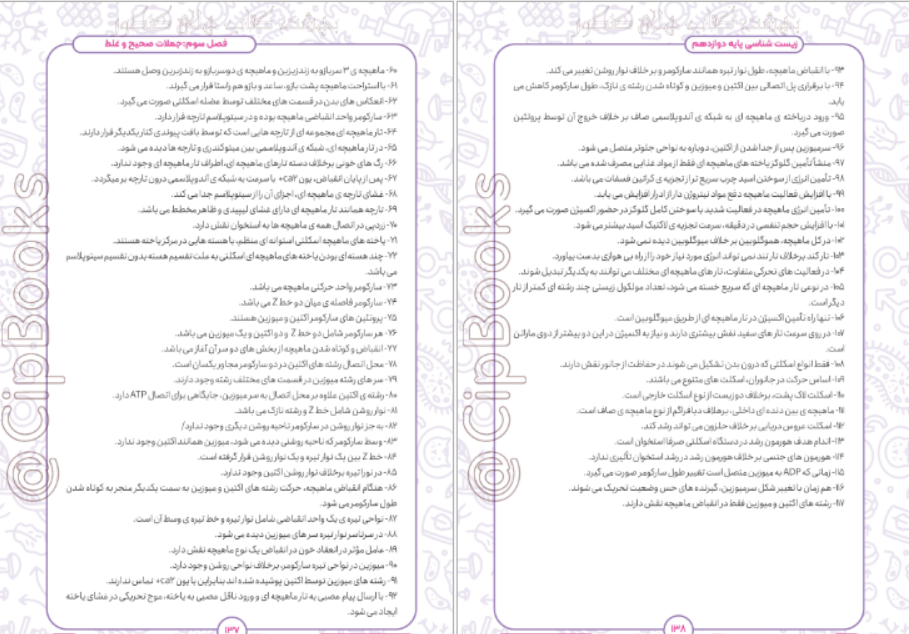 زیست شناسی پایه دوازدهم
۹۳- با انقباض ماهیچه، طول نوار تیره همانند سارکومر و بر خلاف نوار روشن تغییر می کند.
۹۴- با برقراری پل اتصالی بین اکتین و میوزین و کوتاه شدن رشته ی نازک، طول سارکومر کاهش می
یابد.
۹۵- ورود دریافته ی ماهیچه ای به شبکه ی آندوپلاسمی صاف بر خلاف خروج آن توسط پروتئین
صورت می گیرد.
۹۶- سرمیوزین پس از جدا شدن از اکتین، دوباره به نواحی جلوتر متصل می شود.
۹۷- منشأ تأمین گلوکز یاخته های ماهیچه ای فقط از مواد غذایی مصرف شده می باشد.
۹۸- تأمین انرژی از سوختن اسید چرب سریع تر از تجزیه ی کراتین فسفات می باشد.
۹۹- با افزایش فعالیت ماهیچه دفع مواد نیتروژن دار از ادرار افزایش می یابد.
۱۰۰- تأمین انرژی ماهیچه در فعالیت شدید با سوختن کامل گلوکز در حضور اکسیژن صورت می گیرد.
۱۰۱- با افزایش حجم تنفسی در دقیقه، سرعت تجزیه ی لاکتیک اسید بیشتر می شود.
۱۰۲- در کل ماهیچه، هموگلوبین بر خلاف میوگلوبین دیده نمی شود.
۱۰۳- تار کند برخلاف تار تند نمی تواند انرژی مورد نیاز خود را از راه بی هوازی بدست بیاورد.
۱۰۴- در فعالیت های تحرکی متفاوت، تار های ماهیچه ای مختلف می توانند به یکدیگر تبدیل شوند.
۱۰۵- در نوعی تار ماهیچه ای که سریع خسته می شود، تعداد مولکول زیستی چند رشته ای کمتر از تار
دیگر است.
۱۰۶- تنها راه تأمین اکسیژن در تار ماهیچه ای از طریق میوگلوبین است.
۱۰۷- در روی سرعت تار های سفید نقش بیشتری دارند و نیاز به اکسیژن در این دو بیشتر از دوی ماراتن
است.
۱۰۸- فقط انواع اسکلتی که درون بدن تشکیل می شوند در حفاظت از جانور نقش دارند.
۱۰۹- اساس حرکت در جانوران، اسکلت های متنوع می باشند.
۱۱۰- اسکلت لاک پشت، برخلاف دوزیست از نوع اسکلت خارجی است.
۱۱۱- ماهیچه ی بین دنده ای داخلی، برخلاف دیافراگم از نوع ماهیچه ی صاف است.
۱۱۲- اسکلت عروس دریایی بر خلاف حلزون می تواند رشد کند.
۱۱۳- اندام هدف هورمون رشد در دستگاه اسکلتی صرفا استخوان است.
۱۱۴- هورمون های جنسی بر خلاف هورمون رشد در رشد استخوان تأثیری ندارد.
۱۱۵- زمانی که ADP به میوزین متصل است تغییر طول سارکومر صورت می گیرد.
۱۱۶- هم زمان با تغییر شکل سرمیوزین، گیرنده های حس وضعیت تحریک می شوند.
۱۱۷- رشته های اکتین و میوزین فقط در انقباض ماهیچه نقش دارند.
۱۳۸
@CipBooks
فصل سوم:جملات صحیح و غلط
۶۰- ماهیچه ی ۳ سربازو به زندزیرین و ماهیچه ی دوسربازو به زندزبرین وصل هستند.
۶۱- با استراحت ماهیچه پشت بازو، ساعد و بازو هم راستا قرار می گیرند.
۶۲- انعکاس های بدن در قسمت های مختلف توسط عضله اسکلتی صورت می گیرد.
۶۳- سارکومر واحد انقباضی ماهیچه بوده و در سیتوپلاسم تارچه قرار دارد.
۶۴- تار ماهیچه ای مجموعه ای از تارچه هایی است که توسط بافت پیوندی کنار یکدیگر قرار دارند.
۶۵- در تار ماهیچه ای، شبکه ی آندوپلاسمی بین میتوکندری و تارچه ها دیده می شود.
۶۶- رگ های خونی برخلاف دسته تارهای ماهیچه ای، اطراف تار ماهیچه ای وجود ندارد.
۶۷- پس از پایان انقباض، یون ca۲+ با سرعت به شبکه ی آندوپلاسمی درون تارچه بر میگردد.
۶۸- غشای تارچه ی ماهیچه ای، اجزای آن را از سیتوپلاسم جدا می کند.
۶۹- تارچه همانند تار ماهیچه ای دارای غشای لیپیدی و ظاهر مخطط می باشد.
۷۰- زردپی در اتصال همه ی ماهیچه ها به استخوان نقش دارد.
۷۱- یاخته های ماهیچه اسکلتی استوانه ای منظم، با هسته هایی در مرکز یاخته هستند.
۷۲- چند هسته ای بودن یاخته های ماهیچه ای اسکلتی به علت تقسیم هسته بدون تقسیم سیتوپلاسم
می باشد.
۷۳- سارکومر واحد حرکتی ماهیچه می باشد.
۷۴- سارکومر فاصله ی میان دو خط Z می باشد.
۷۵- پروتئین های سارکومر اکتین و میوزین هستند.
۷۶- هر سارکومر شامل دو خط Z و دو اکتین و یک میوزین می باشد.
۷۷- انقباض و کوتاه شدن ماهیچه از بخش های دو سر آن آغاز می باشد.
۷۸- محل اتصال رشته های اکتین در دو سارکومر مجاور یکسان است.
۷۹- سر های رشته میوزین در قسمت های مختلف رشته وجود دارند.
۸۰- رشته ی اکتین علاوه بر محل اتصال به سر میوزین، جایگاهی برای اتصال ATP دارد.
۸۱- نوار روشن شامل خط Z و رشته نازک می باشد.
۸۲- به جز نوار روشن در سارکومر ناحیه روشن دیگری وجود ندارد/
۸۳- وسط سارکومر که ناحیه روشنی دیده می شود، میوزین همانند اکتین وجود ندارد.
۸۴- خط Z بین یک نوار تیره و یک نوار روشن قرار گرفته است.
۸۵- در نورا تیره برخلاف نوار روشن اکتین وجود ندارد.
۸۶- هنگام انقباض ماهیچه، حرکت رشته های اکتین و میوزین به سمت یکدیگر منجر به کوتاه شدن
طول سارکومر می شود.
۸۷- نواحی تیره ی یک واحد انقباضی شامل نوار تیره و خط تیره ی وسط آن است.
۸۸- در سرتاسر نوار تیره سر های میوزین دیده می شود.
۸۹- عامل مؤثر در انعقاد خون در انقباض یک نوع ماهیچه نقش دارد.
۹۰- میوزین در نواحی تیره سارکومر، برخلاف نواحی روشن وجود دارد.
۹۱- رشته های میوزین توسط اکتین پوشیده شده اند بنابراین با یون ca۲+ تماس ندارند.
۹۲- با ارسال پیام عصبی به تار ماهیچه ای و ورود ناقل عصبی به یاخته، موج تحریکی در غشای یاخته
ایجاد می شود.
۱۳۷
@CipBooks